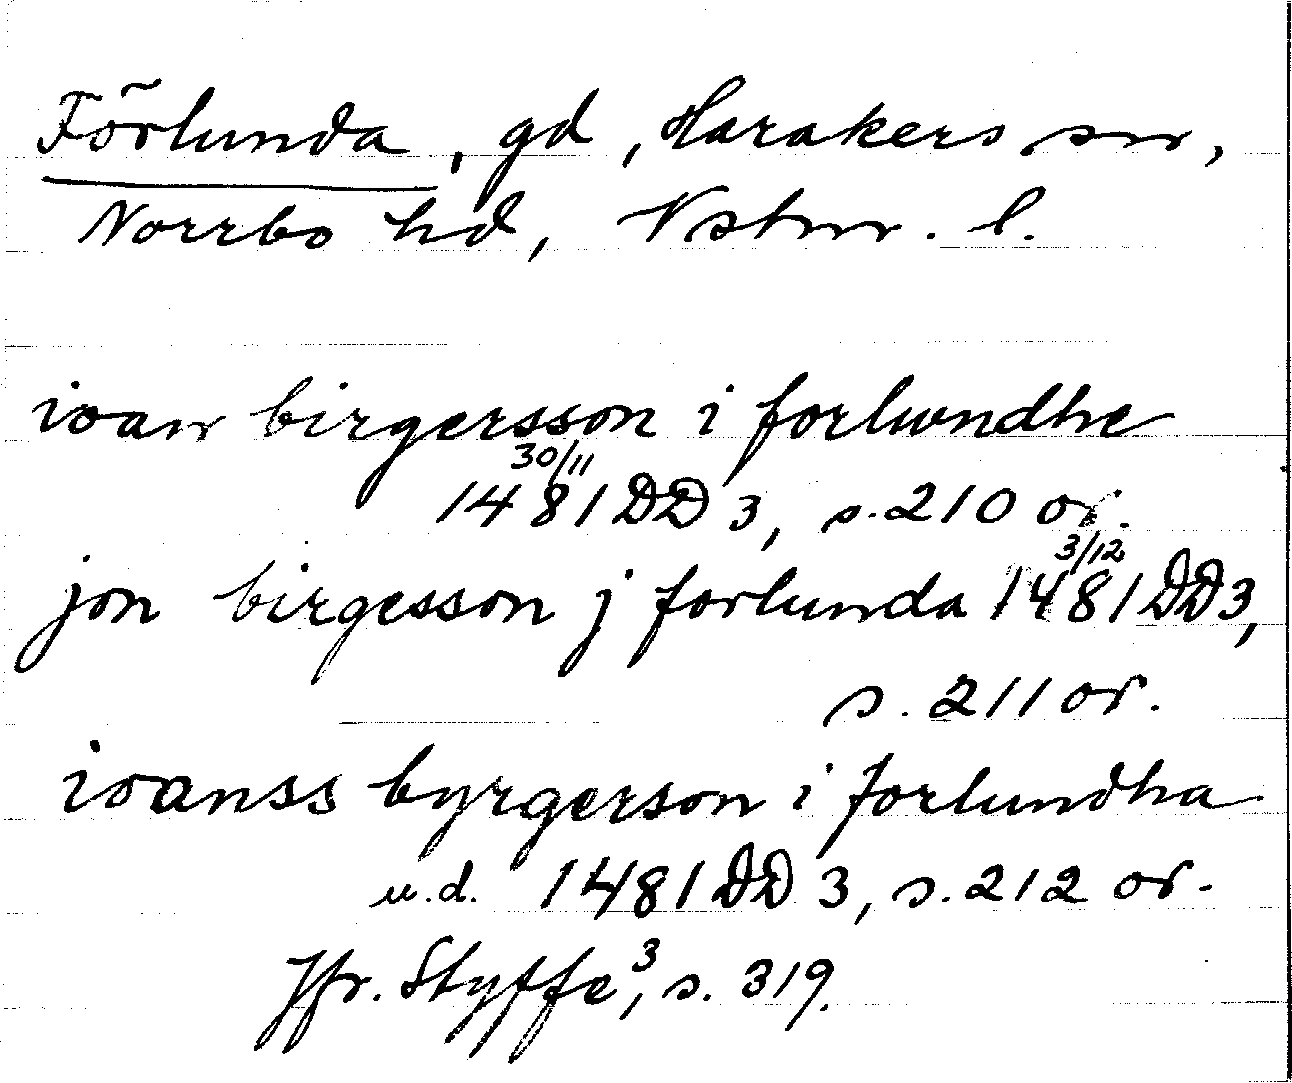 Förlunda, gd, Harakers sn,
Norrbo hd, Vstm. l.
ioan birgersson i forlwndhe
30/11
1481 DD 3, s. 210 or.
3/12
jon birgesson j forlunda 1481 DD 3,
s. 211 or.
ioanss byrgerson i forlundha
u.d. 1481 DD 3, s. 212 or.
Jfr. Styffe³, s. 319.